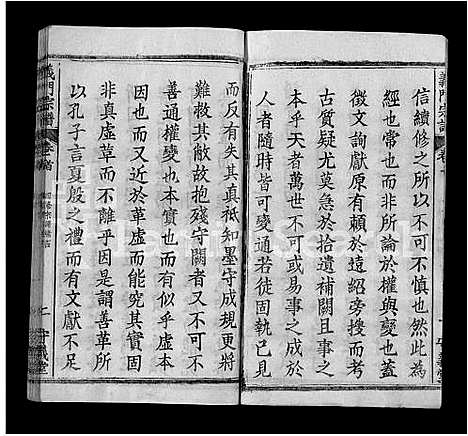 義門宗譜 卷首
信續修之所以不可不慎也然此為
經也常也而非所論於權與變也蓋
徵文詢獻原有頼於遠紹旁搜而考
古質疑尤莫急於拾遺補闕且事之
本乎天者萬世不可或易事之成於
人者隨時皆可變通若徒固執己見
而反有失其真柢知墨守成規更將
難救其敝故抱殘守闕者又不可不
善通權變也其有似乎虛而其實固
因也革也革虛而能究其實因
非真虛革而不離乎因是謂善革所
以孔子言夏殷之禮而有文獻不足
義門宗譜 卷首
二 守義堂